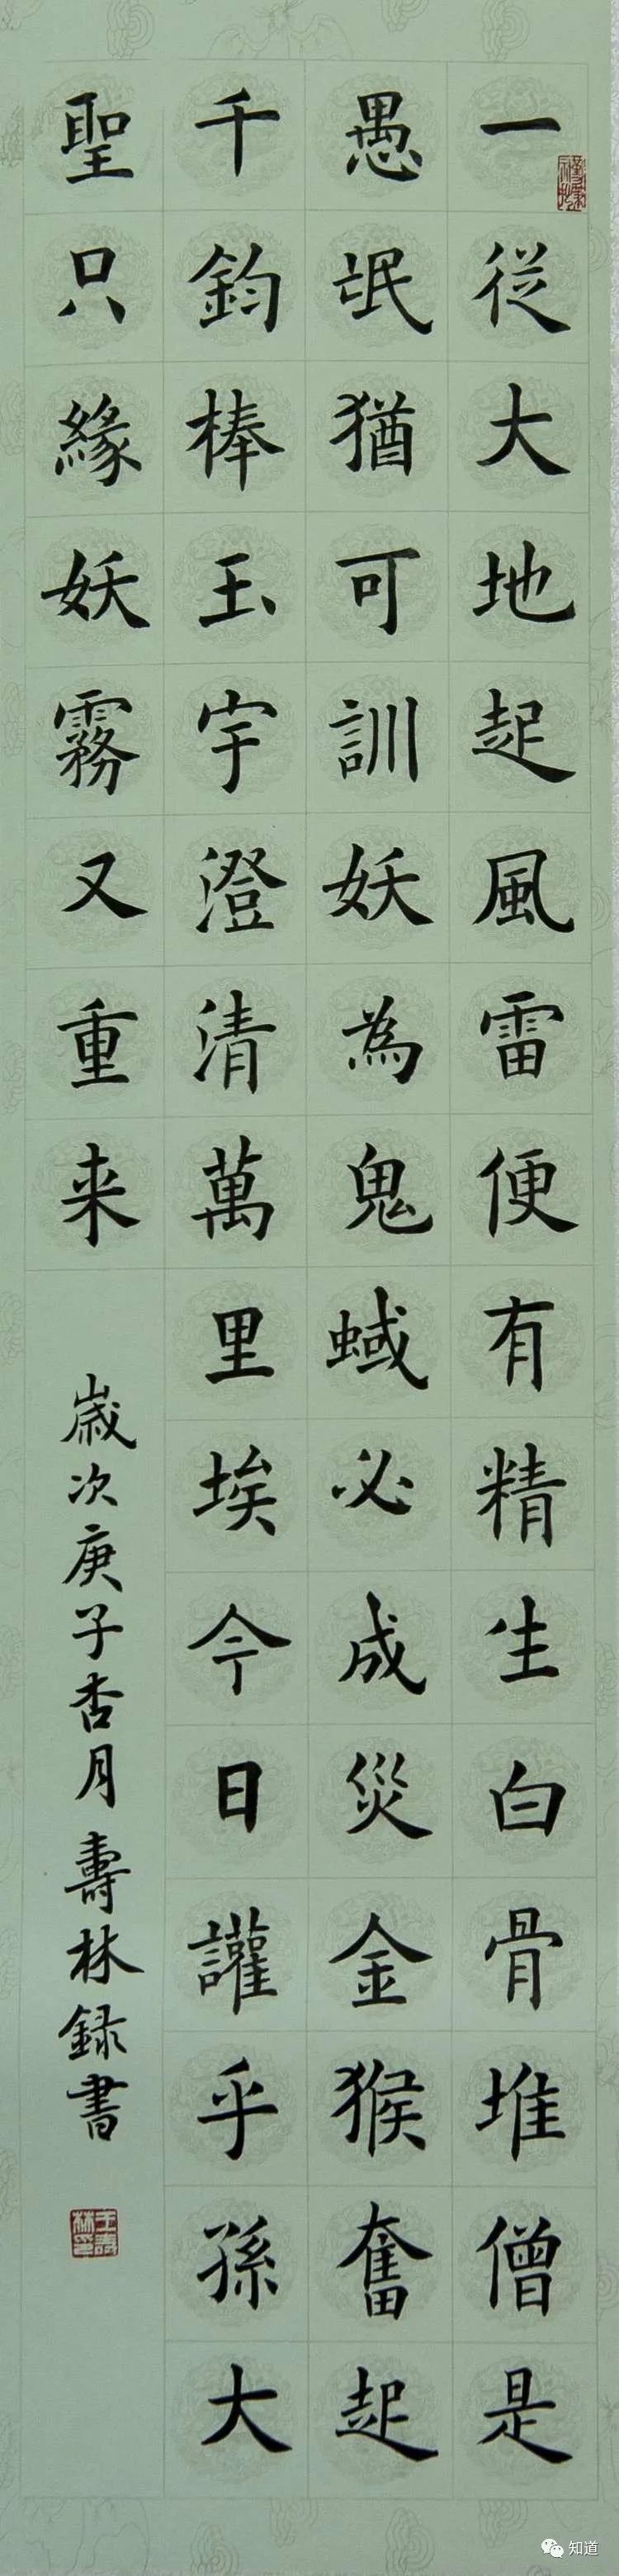 一従大地起風雷便有精生白骨堆僧是
愚氓猶可訓妖為鬼蜮必成災金猴奮起
千鈞棒玉宇澄清萬里埃今日讙乎孫大
聖只緣妖霧又重来
歲次庚子杏月壽林録書
王壽林印
知道